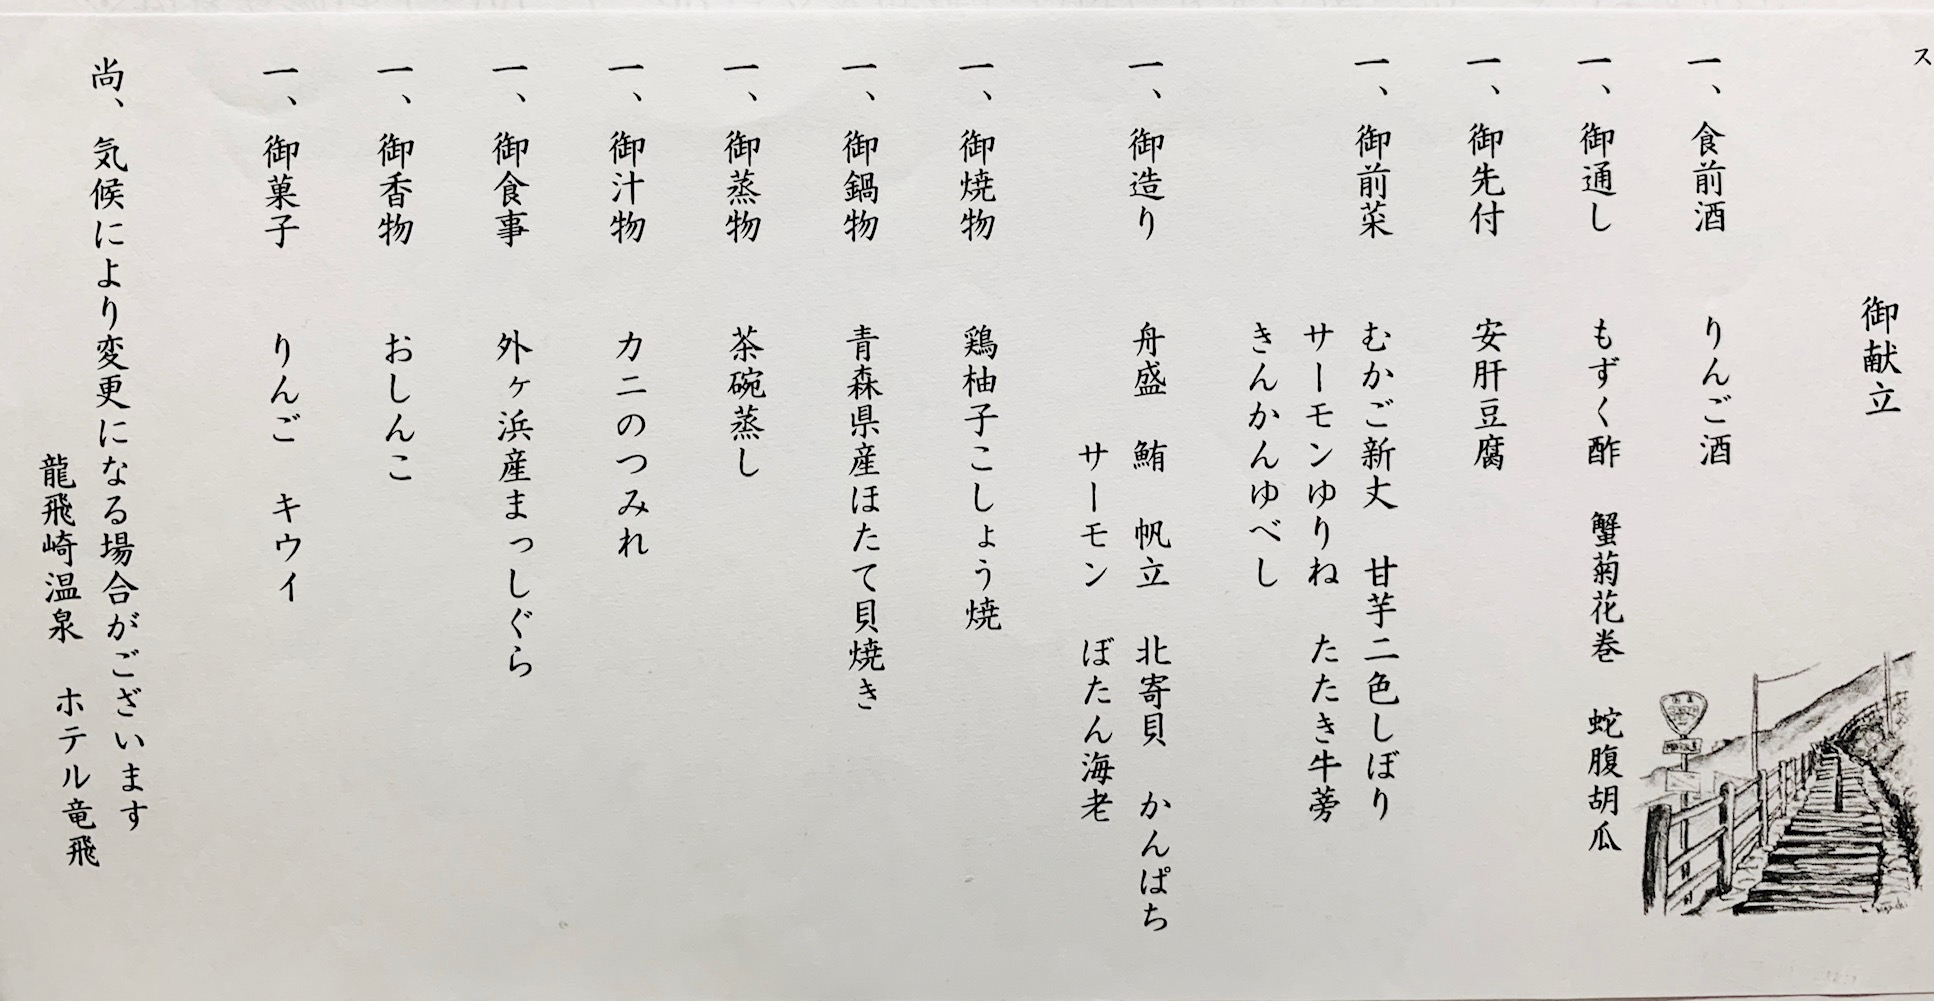 ス
御献立
一、食前酒　りんご酒
一、御通し　もずく酢　蟹菊花巻　蛇腹胡瓜
一、御先付　安肝豆腐
一、御前菜　むかご新丈　甘芋二色しぼり
サーモンゆりね　たたき牛蒡
きんかんゆべし
一、御造り　舟盛　鮪　帆立　北寄貝　かんぱち
サーモン　ぼたん海老
一、御焼物　鶏柚子こしょう焼
一、御鍋物　青森県産ほたて貝焼き
一、御蒸物　茶碗蒸し
一、御汁物　カニのつみれ
一、御食事　外ヶ浜産まっしぐら
一、御香物　おしんこ
一、御菓子　りんご　キウイ
尚、気候により変更になる場合がございます
龍飛崎温泉　ホテル竜飛